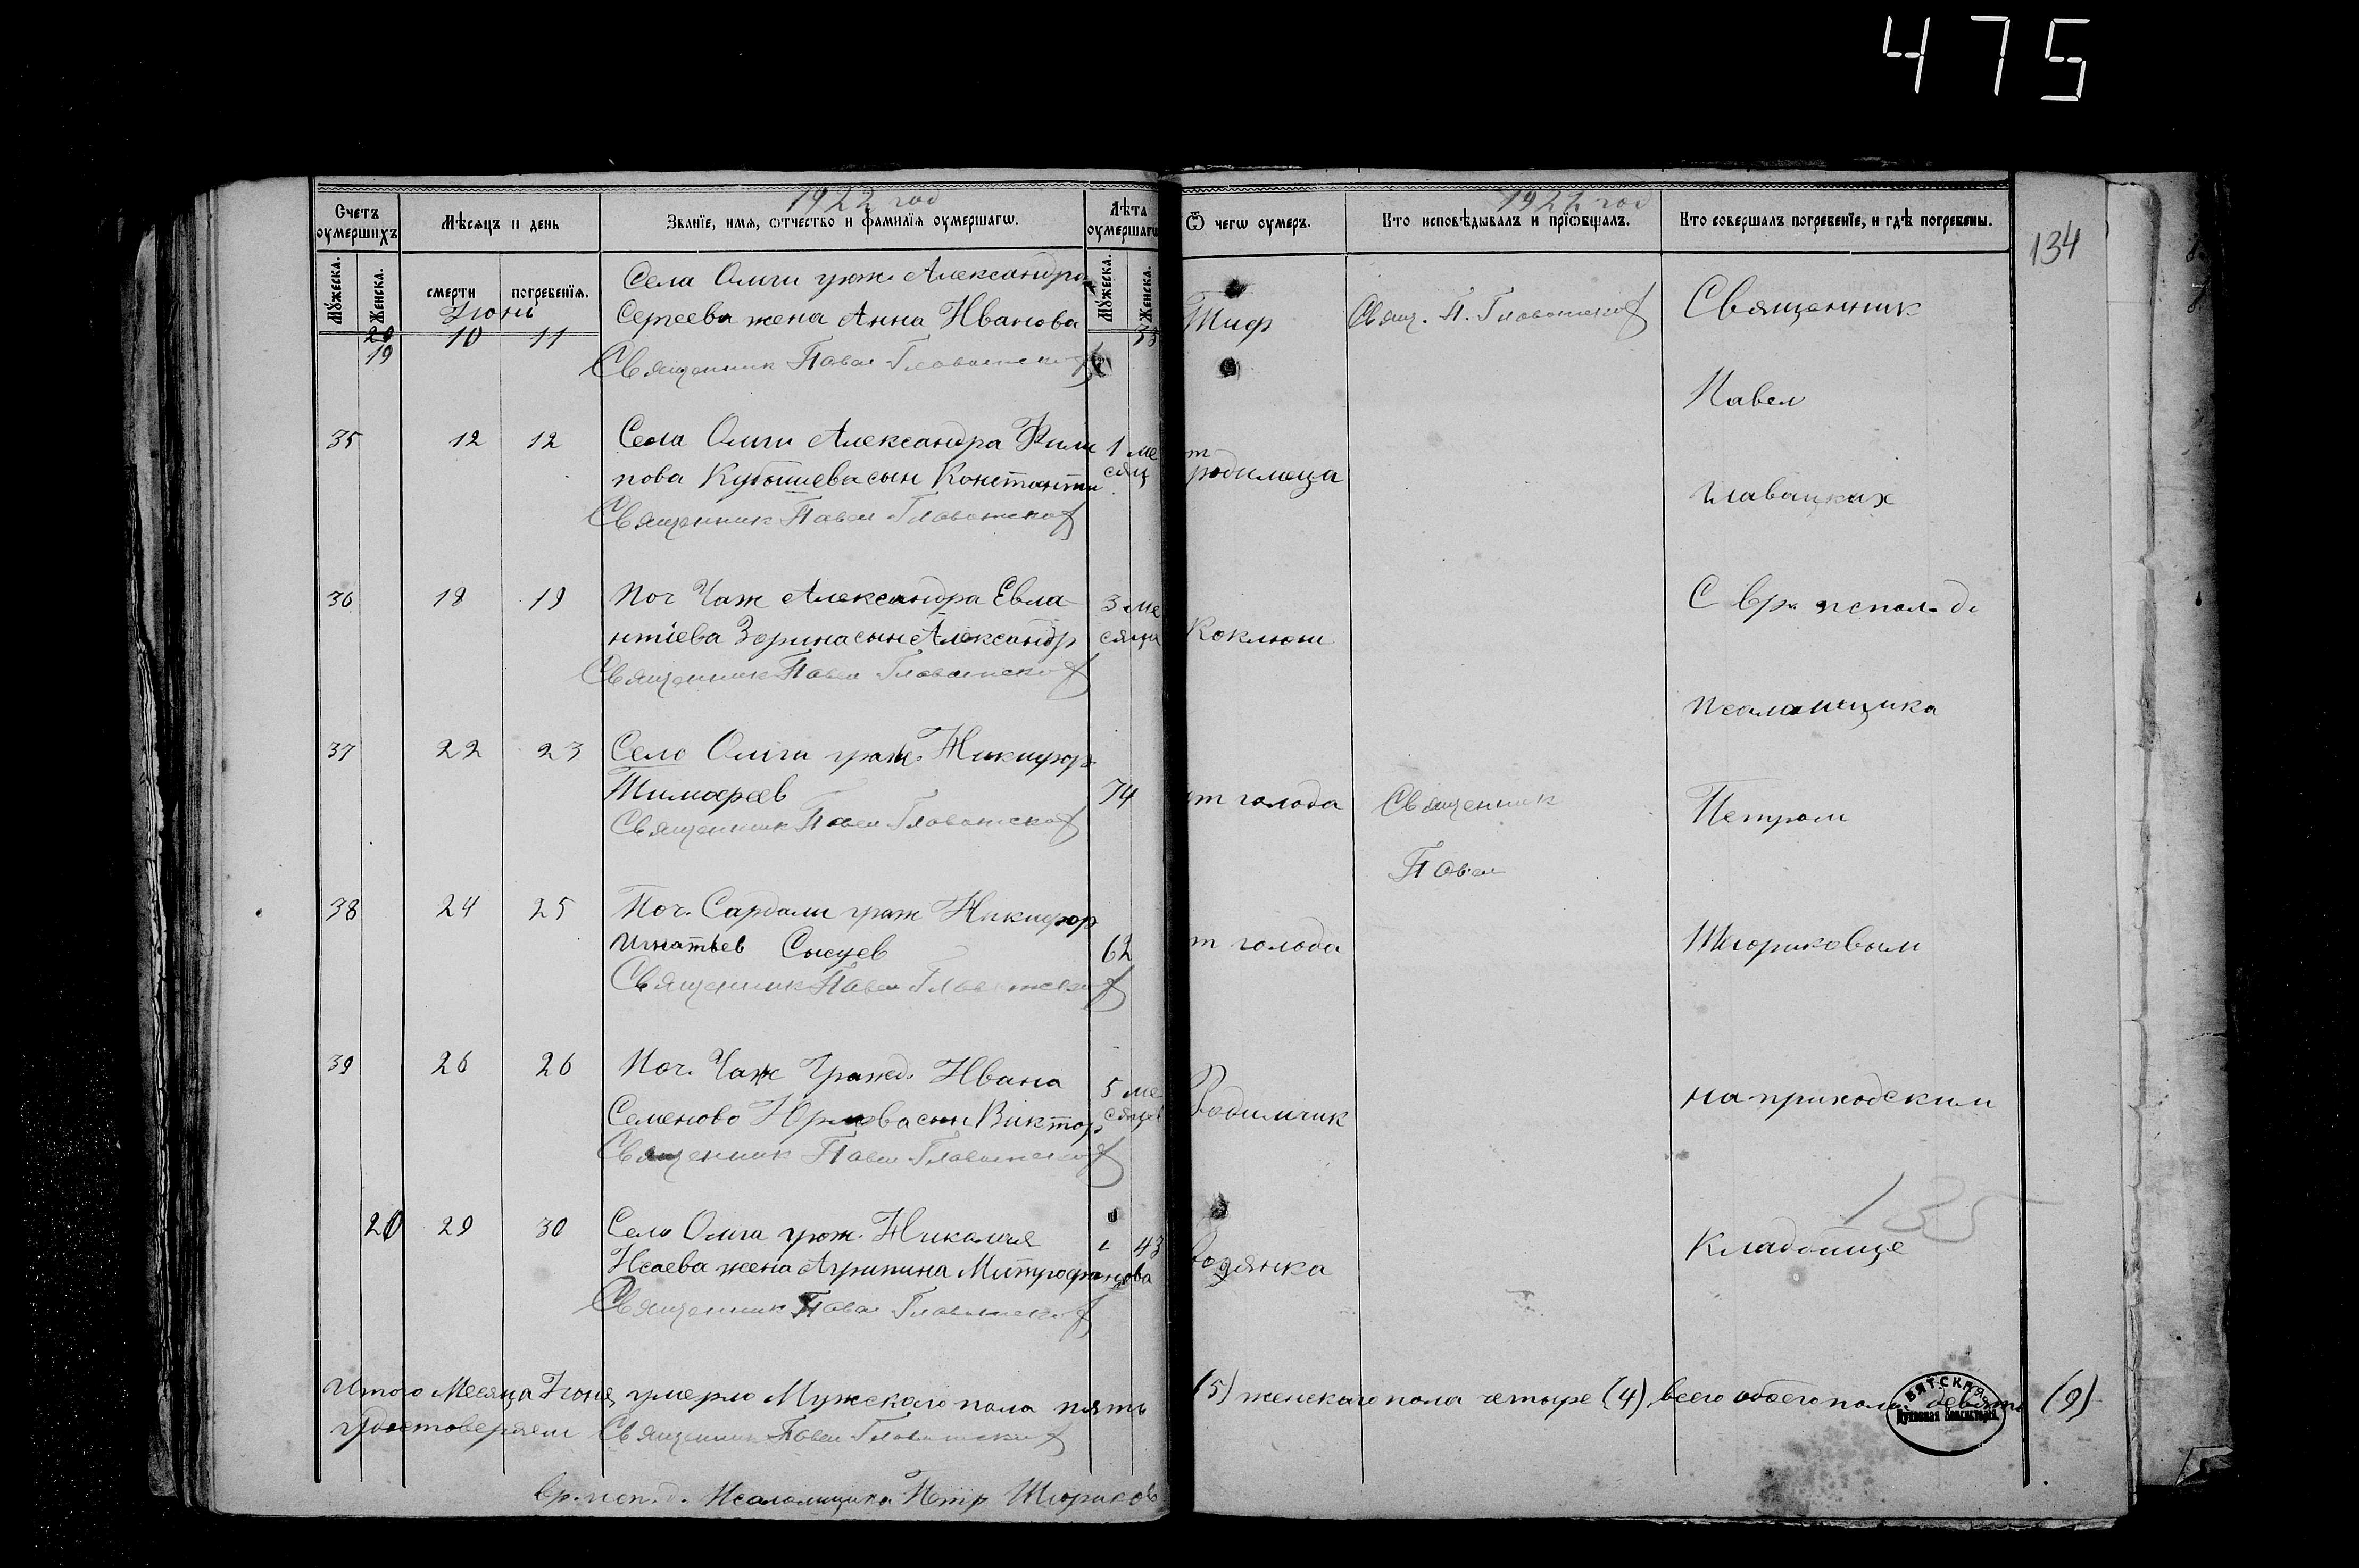 475
1922 год
Счетъ оумершихъ.
Мѣсяцъ и день
Званїе, имя, ѿтчество и фамилїя оумершагѡ.
Лѣта оумершагѡ
Мꙋжеска.
Женска.
смерти
погребенїя.
Мꙋжеска.
Женска.
Июнь
20
19
10
11
Села Олыги граж. Александра
Сергеева жена Анна Иванова
53
Священник Павел Главатских
35
12
12
Села Олыги Александра Фили
пова Кубышева сын Константин
1 ме
сяц
Священник Павел Главатских
36
18
19
Поч Чаж Александра Евла
нтiева Зорина сын Александр
3 ме
сяца
Священник Павел Главатских
37
22
23
Село Олыги граж. Никифор
Тимофеев
74
Священник Павел Главатских
38
24
25
Поч. Сардали граж Никифор
Игнатьев Сысуев
62
Священник Павел Главатских
39
26
26
Поч. Чаж Гражд. Ивана
Семенова сын Виктор
5 ме
сяцев
Священник Павел Главатских
20
29
30
Село Олыга граж. Николая
Исаева жена Агрипина Митрофанова
43
Священник Павел Главатских
Итого месяца Июня умерло Мужского пола пять
удостоверяем Священник Павел Главатских
Вр. исп. д. Псаломщика Петр Шюриков
1922 год
Ѿ чегѡ оумеръ.
Кто исповѣдывалъ и прїѡбщалъ.
Кто совершалъ погребенїе, и гдѣ погребены.
134
Тиф
Свящ. П. Главатских
Священник
Павел
т
родимеца
Главацких
Коклюш
С вр. испол. д.
псаломщика
от голода
Священник
Петром
Павел
т голода
Шюриковым
Родимчик
на приходском
135
водянка
Кладбище
(5) женского пола четыре (4), всего обоего пола девять (9)
ВЯТСКАЯ
Духовная Консисторія.